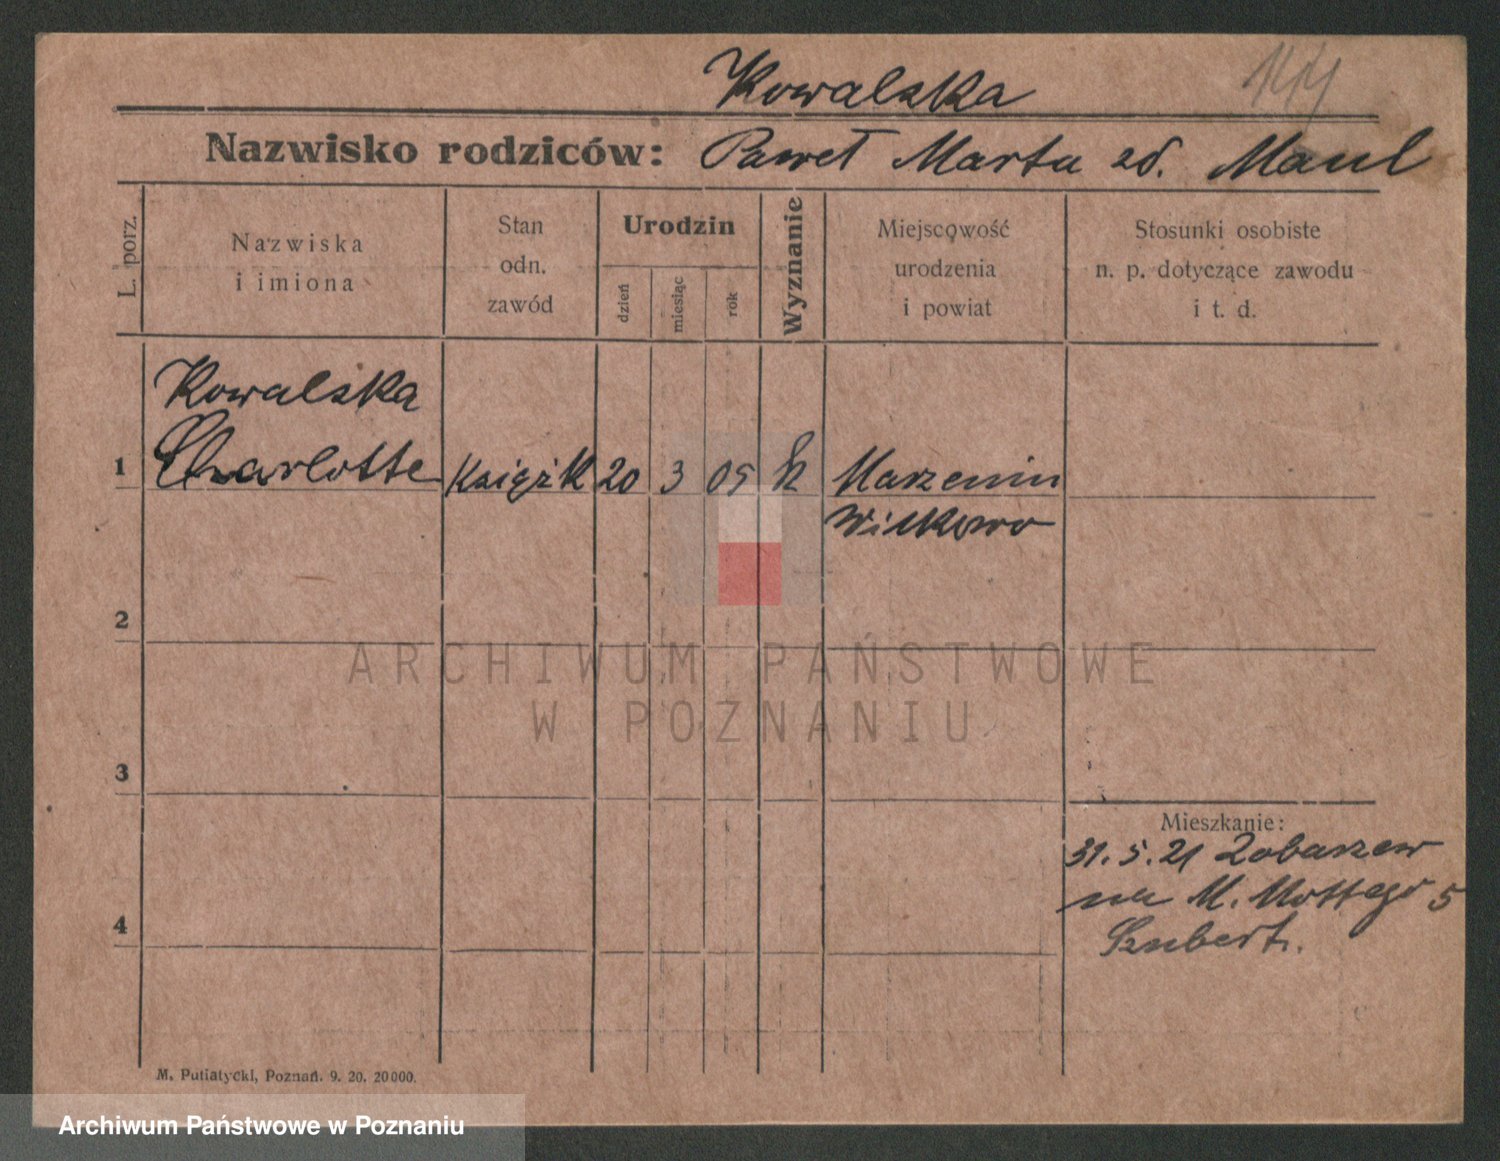 Kowalska 144
Nazwisko rodziców: Paweł Marta zd. Maul
L. porz.
Nazwiska
i imiona
Stan
odn.
zawód
Urodzin
dzień
miesiąc
rok
Wyznanie
Miejscowość
urodzenia
i powiat
Stosunki osobiste
n. p. dotyczące zawodu
i t. d.
Kowalska
1 Charlotte Książk 20 3 05 k Marzenin
Witkowo
2
ARCHIWUM PAŃSTWOWE
W POZNANIU
3
Mieszkanie:
31. 5. 21
na M. Mottego 5
4 Szubert.
M. Putiatycki, Poznań. 9. 20. 20000.
Archiwum Państwowe w Poznaniu